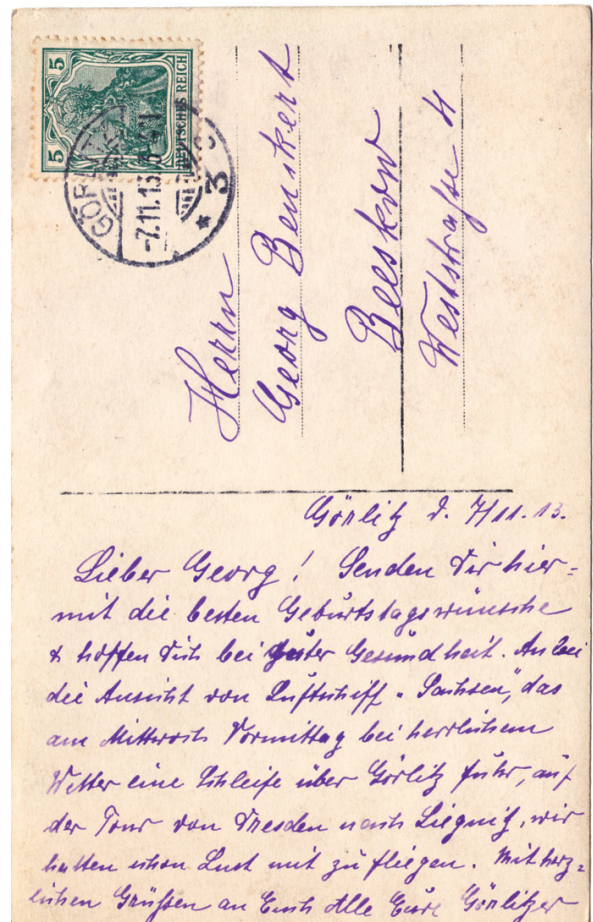 5
5
DEUTSCHES REICH
GÖRLITZ
-7.11.13
* 3
Herrn
Georg Benskert
Beeskow
Weststrasse 4
Görlitz d. 7/11. 13.
Lieber Georg! Senden Dir hier=
mit die besten Geburtstagswünsche
& hoffen Dich bei guter Gesundheit. Anbei
die Ansicht von Luftschiff „Sachsen", das
am Mittwoch Vormittag bei herrlichem
Wetter eine Schleife über Görlitz fuhr, auf
der Tour von Dresden nach Liegnitz, wir
hatten schon Lust mit zu fliegen. Mit herz=
lichen Grüßen an Euch Alle Eure Görlitzer